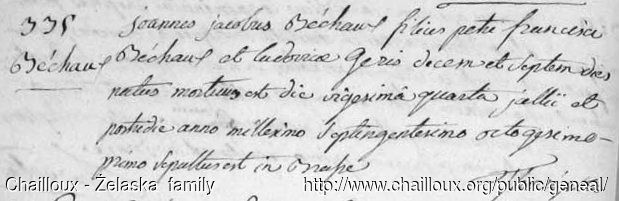 335
Béchaux
joannes jacobus Béchaux filius petri francisci
Béchaux et ludovicæ Geris decem et septem dies
natus mortuus est die vigesimâ quarta jullii et
postridie anno millesimo septingentesimo octogesimo-
primo sepultus est in
Chailloux - Żelaska family
http://www.chailloux.org/public/geneal/